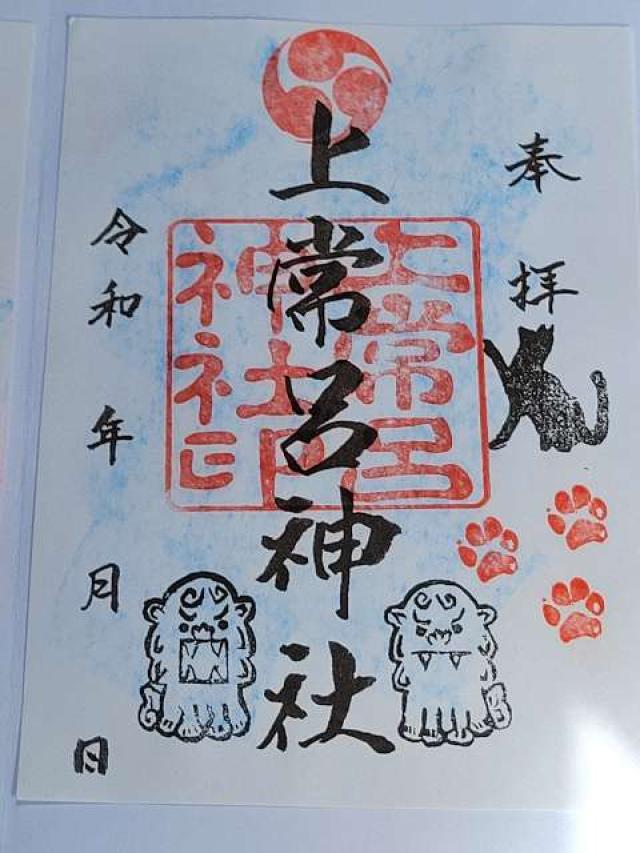 奉拝
上常呂神社
上常呂
神社印
令和 年 月 日